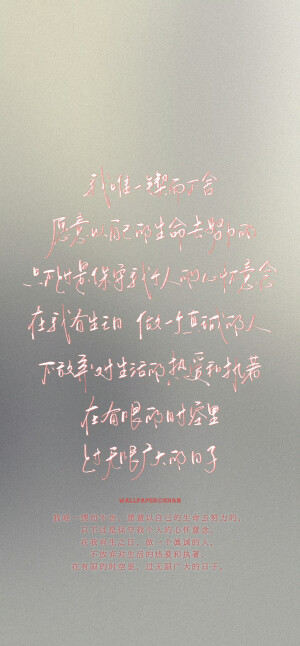 我唯一锲而不舍
愿意以自己的生命去努力的
只不过是保守我个人的心怀意念
在我有生之日 做一个真诚的人
不放弃对生活的热爱和执著
在有限的时空里
过无限广大的日子
WALLPAPER©HAN
我唯一锲而不舍，愿意以自己的生命去努力的，
只不过是保守我个人的心怀意念，
在我有生之日，做一个真诚的人，
不放弃对生活的热爱和执著，
在有限的时空里，过无限广大的日子。